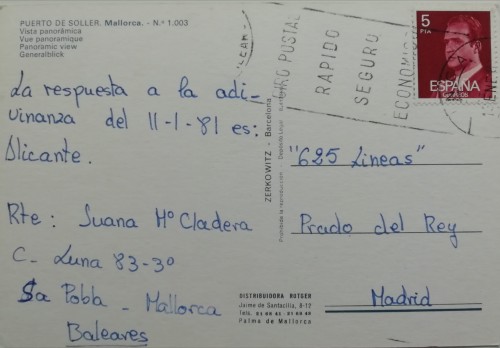 PUERTO DE SOLLER. Mallorca. - N.º 1.003
Vista panorámica
Vue panoramique
Panoramic view
Generalblick
La respuesta a la adi-
vinanza del 11-1-81 es:
Alicante.
Rte: Juana Mª Cladera
C- Luna 83-3º
Sa Pobla - Mallorca
Baleares
ZERKOWITZ - Barcelona
Prohibida la reproducción
DISTRIBUIDORA ROTGER
Jaime de Santacilia, 8-12
Palma de Mallorca
GIRO POSTAL
RAPIDO
SEGURO
5
PTA
ESPAÑA
"625 Lineas"
Prado del Rey
Madrid